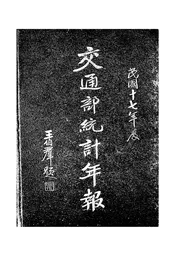 民國十七年度
交通部統計年報
王伯群題